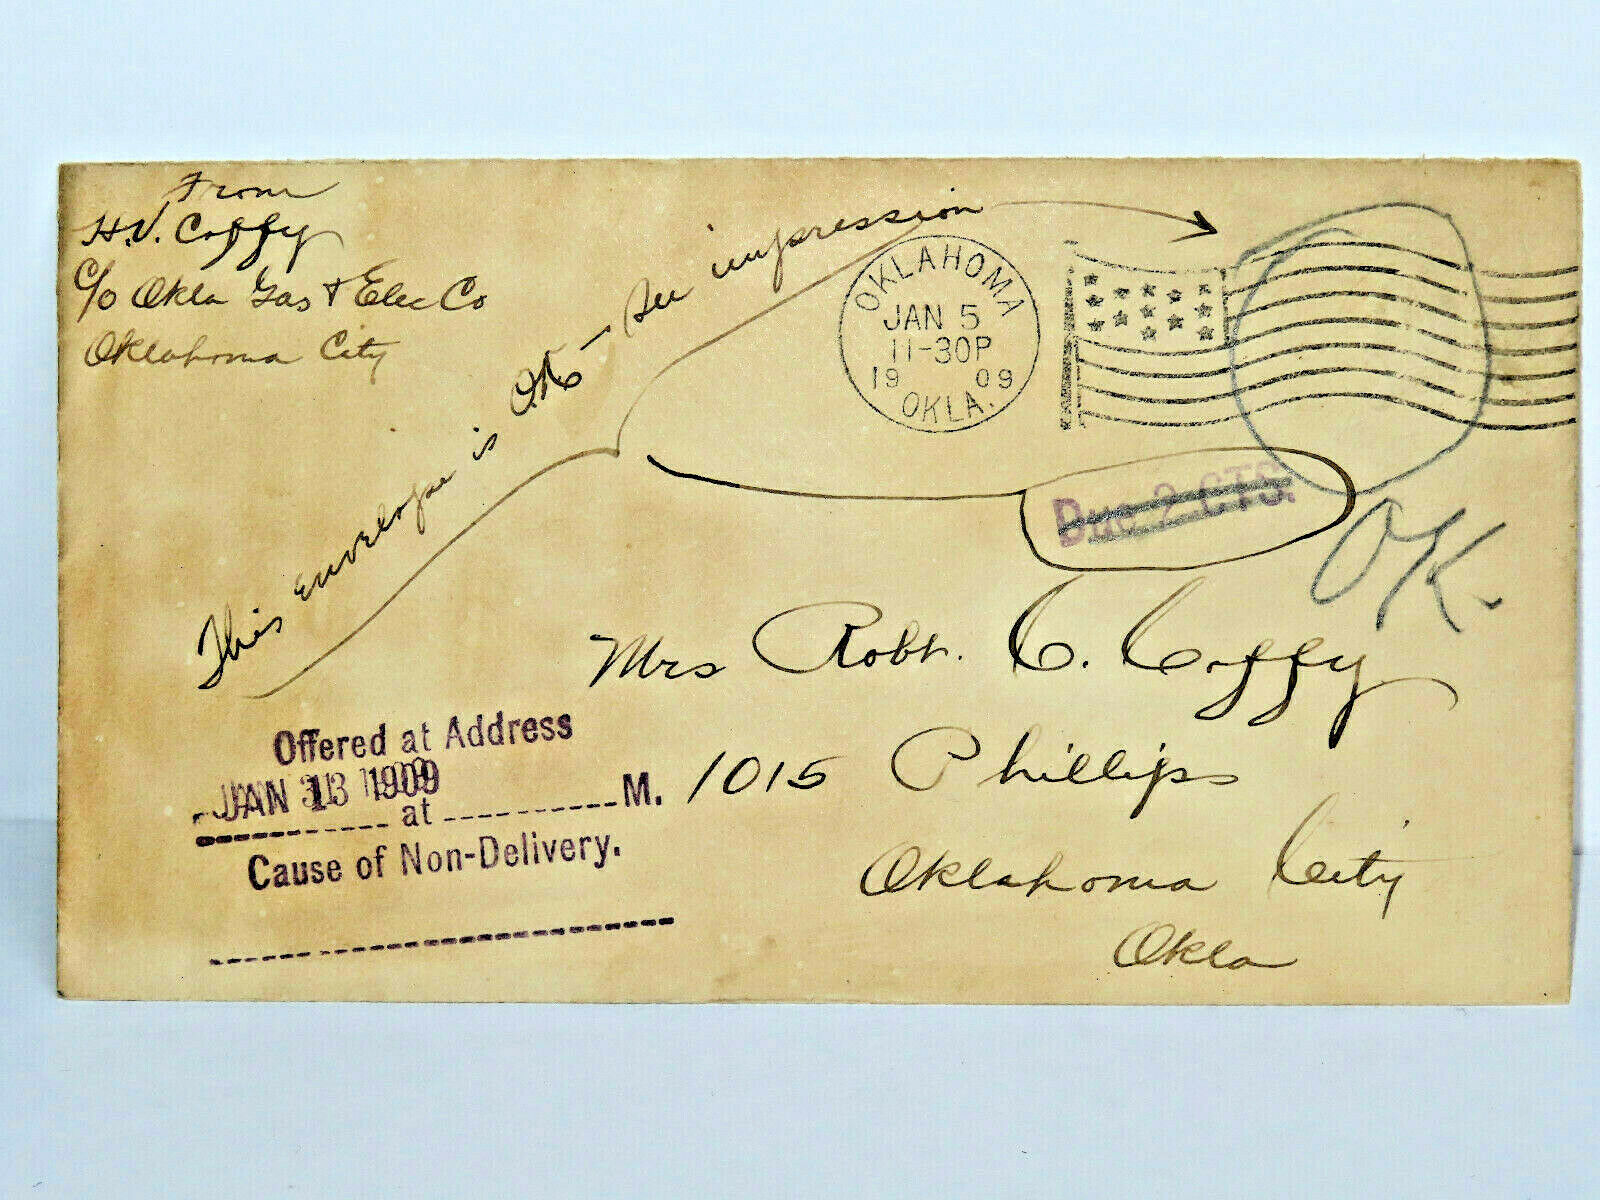 From
H.V. Coffy
c/o Okla Gas & Elec Co
Oklahoma City
This envelope is OK - See impression
OKLAHOMA
JAN 5
11-30P
1909
OKLA.
Due 2 CTS.
OK.
Mrs Robt. C. Coffy
1015 Phillips
Oklahoma City
Okla
Offered at Address
JAN 13 1909
at M.
Cause of Non-Delivery.